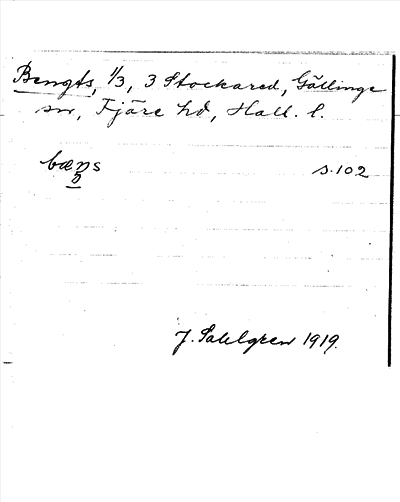 Bengts, 1/3, 3 Stockared, Gällinge
sn, Fjäre hd, Hall. l.
s.102
J. Sahlgren 1919.